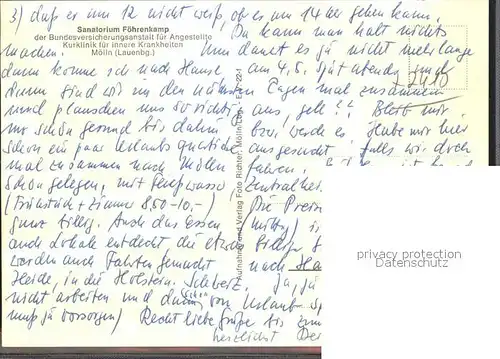 3) daß er um 12 nicht weiß, ob er um 14 Uhr gehen kann.
Sanatorium Föhrenkamp
der Bundesversicherungsanstalt für Angestellte
Kurklinik für innere Krankheiten
Mölln (Lauenbg.)
Da kann man halt nichts
machen. Nun dauert es ja nicht mehr lange
dann komme ich nach Hause am 4.5. spät abends und
dann sind wir in den nächsten Tagen mal zusammen
und plauschen uns so richtig aus, gell?! Bleib mir
nur schön gesund bis dahin bzw. werde es Habe mir hier
schon ein paar Urlaubs quartiere ausgesucht falls wir doch
mal zusammen nach Mölln fahren.
schön gelegen, mit Fließwasser, Zentralhei
(Frühstück + Zimmer 8,50 - 10,-) Die Preise
ganz billig. Auch das Essen
auch Lokale entdeckt die etwas billiger
werden auch Fahrten gemacht nach
Heide, in die Holstein. Schweiz. Ja, ja
nicht arbeiten und dann schon von Urlaub
muß ja vorsorgen) Recht liebe Grüße bis zum
herzlichst
Aufnahme und Verlag Foto Richter, Mölln/Lbg.
privacy protection
Datenschutz